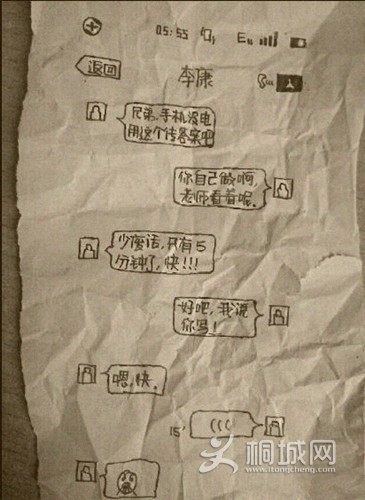 05:55 E
返回
李康
兄弟,手机没电
用这个传答案吧
你自己做啊,
老师看着呢.
少废话,只有5
分钟了,快!!!
好吧,我说
你写!
嗯,快.
15"
桐城网
www.itongcheng.com